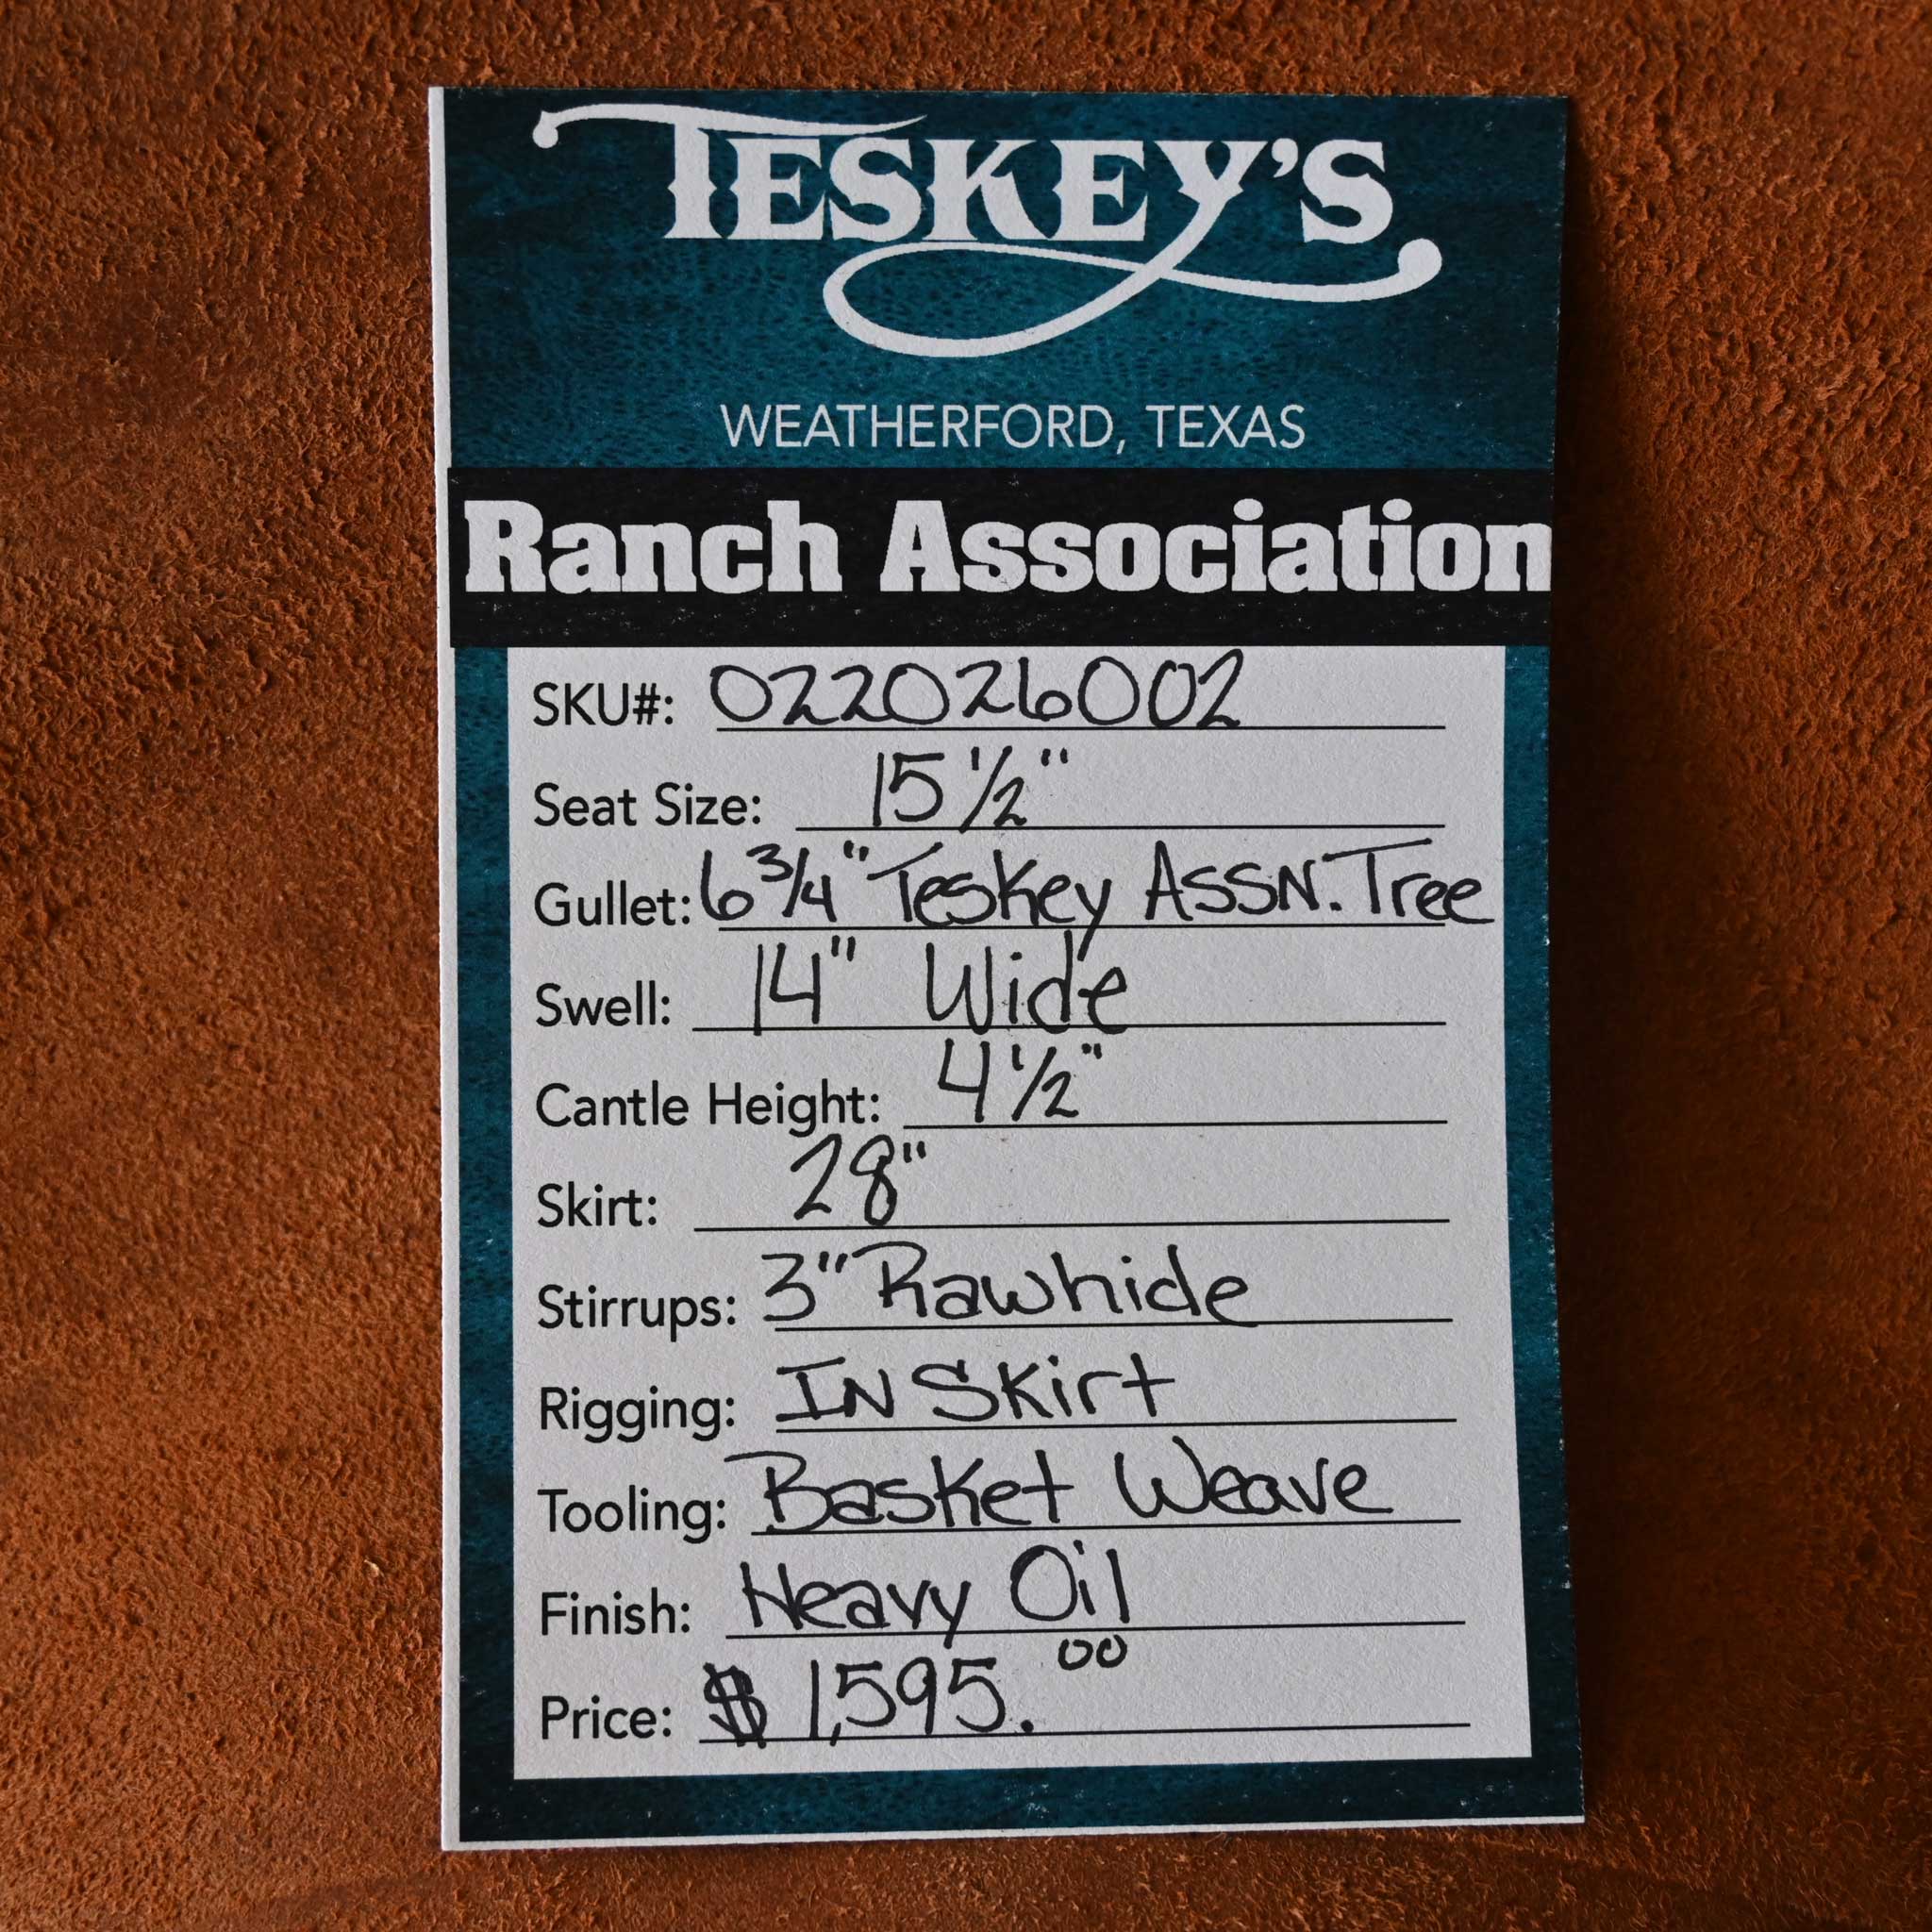 TESKEY'S
WEATHERFORD, TEXAS
Ranch Association
SKU#: 022026002
Seat Size: 15 1/2"
Gullet: 6 3/4" Teskey ASSN. Tree
Swell: 14" Wide
Cantle Height: 4 1/2"
Skirt: 28"
Stirrups: 3" Rawhide
Rigging: IN Skirt
Tooling: Basket Weave
Finish: Heavy Oil
Price: $ 1,595.00